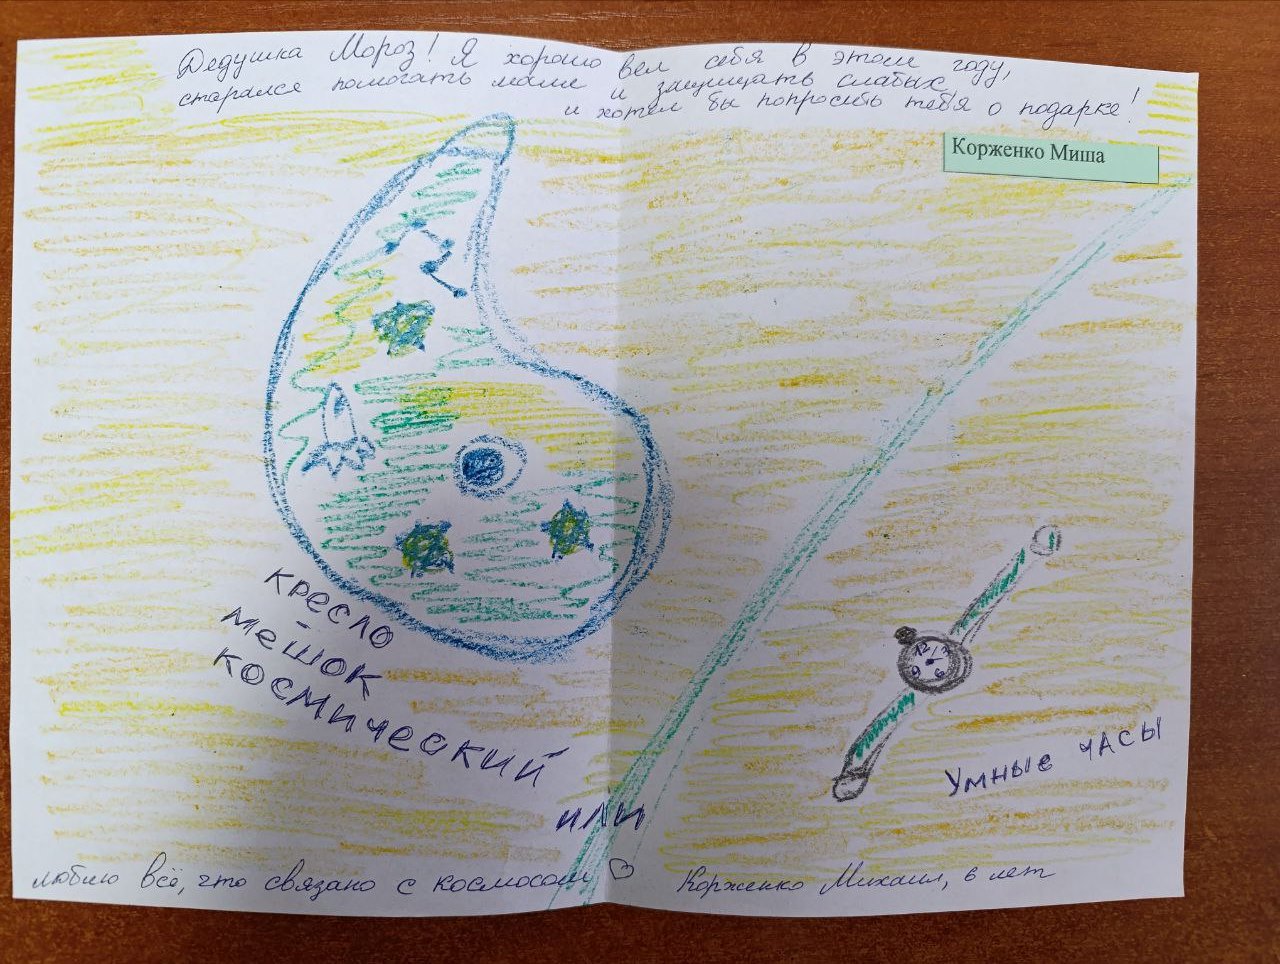 Дедушка Мороз! Я хорошо вел себя в этом году,
старался помогать маме и защищать слабых,
и хотел бы попросить тебя о подарке!
Корженко Миша
12
3
6
9
кресло
-
мешок
космический
или
Умные часы
люблю всё, что связано с космосом ♡
Корженко Михаил, 6 лет